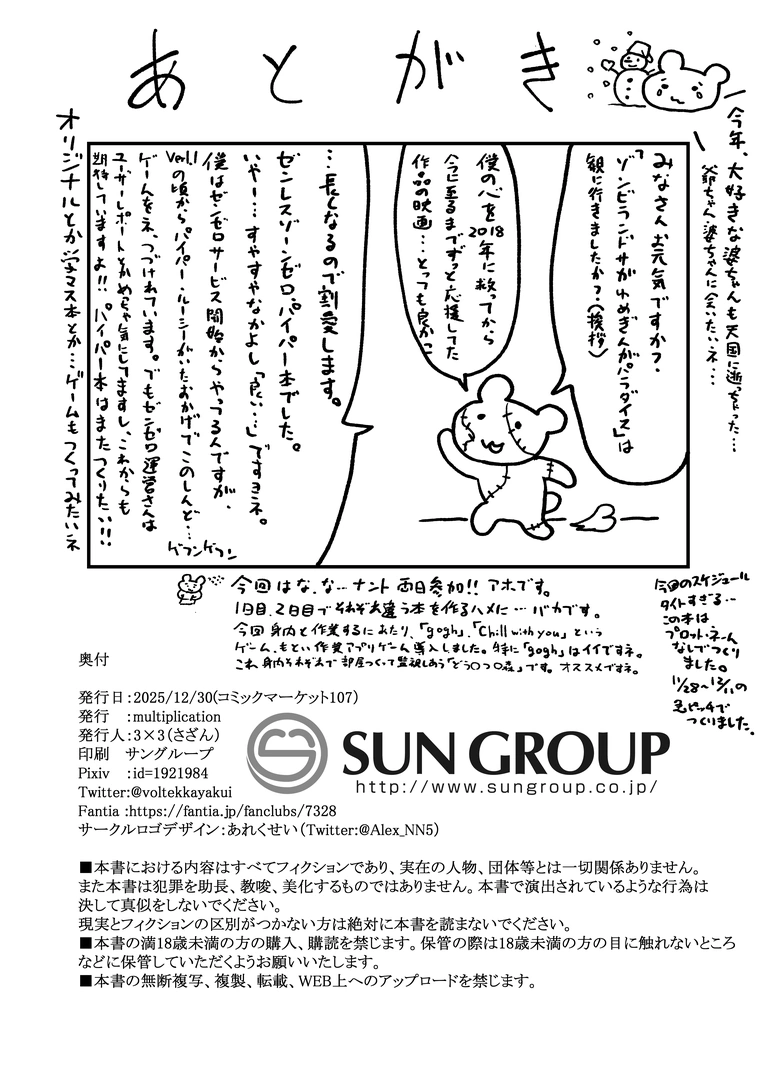 あとがき
今年、大好きな婆ちゃんも天国に逝っちゃった…
爺ちゃん婆ちゃんに会いたいネ…
みなさんお元気ですか？
「ゾンビランドサガゆめぎんがパラダイス」は
観に行きましたか？（挨拶）
僕の心を2018年に救ってから
今に至るまでずっと応援してた
作品の映画…とっても良かっ
…長くなるので割愛します。
ゼンレスゾーンゼロ、パイパー本でした。
いやー…すやすやなかよし「良い…」ですネ。
僕はゼンゼロサービス開始からやってるんですが、
Ver1.1の頃からパイパー・ルーシーがいたおかげでこのしんど…
ゲフンゲフン
ゲームをネ、つづけれています。でもゼンゼロ運営さんは
ユーザーレポートとかめちゃ気にしてますし、これからも
期待していますよ!!パイパー本はまたつくりたい!!
オリジナルとか学マス本とか…ゲームもつくってみたいネ
今回はな、な…ナント両日参加!!アホです。
1日目、2日目でそれぞれ違う本を作るハメに…バカです。
今回身内と作業するにあたり、「gogh」、「Chill with you」という
ゲーム、もとい作業アプリゲーム導入しました。特に「gogh」はイイですネ。
これ身内それぞれで部屋つくって監視しあう「どう○つ○森」です。オススメですネ。
今回のスケジュール
タイトすぎる…
この本は
プロット・ネーム
なしでつくり
ました。
11/28〜12/11の
急ピッチで
つくりました。
奥付
発行日：2025/12/30(コミックマーケット107)
発行　：multiplication
発行人：3×3（さざん）
印刷　サングループ
Pixiv　：id=1921984
Twitter:@voltekkayakui
Fantia :https://fantia.jp/fanclubs/7328
サークルロゴデザイン：あれくせい（Twitter:@Alex_NN5）
SUN GROUP
http://www.sungroup.co.jp/
■本書における内容はすべてフィクションであり、実在の人物、団体等とは一切関係ありません。
また本書は犯罪を助長、教唆、美化するものではありません。本書で演出されているような行為は
決して真似をしないでください。
現実とフィクションの区別がつかない方は絶対に本書を読まないでください。
■本書の満18歳未満の方の購入、購読を禁じます。保管の際は18歳未満の方の目に触れないところ
などに保管していただくようお願いいたします。
■本書の無断複写、複製、転載、WEB上へのアップロードを禁じます。